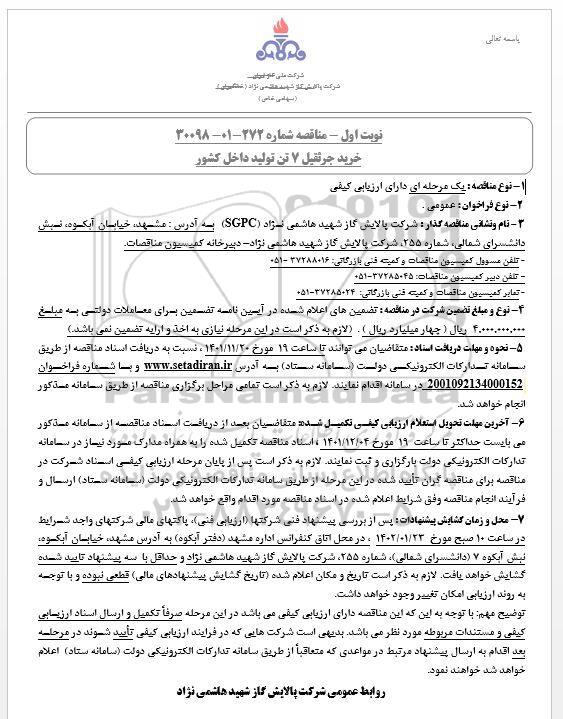 باسمه تعالی
شرکت ملی گاز ایران
شرکت پالایش گاز شهید هاشمی نژاد (خانگیران)
(سهامی خاص)
نوبت اول – مناقصه شماره ۲۷۲-۰۱-۳۰۰۹۸
خرید جرثقیل ۷ تن تولید داخل کشور
۱- نوع مناقصه: یک مرحله ای دارای ارزیابی کیفی
۲- نوع فراخوان: عمومی.
۳- نام ونشانی مناقصه گذار: شرکت پالایش گاز شهید هاشمی نژاد (SGPC) به آدرس: مشهد، خیابان آبکوه، نبش
دانشسرای شمالی، شماره ۲۵۵، شرکت پالایش گاز شهید هاشمی نژاد- دبیرخانه کمیسیون مناقصات.
- تلفن مسوول کمیسیون مناقصات و کمیته فنی بازرگانی: ۳۷۲۸۸۰۱۶-۰۵۱
- تلفن دبیر کمیسیون مناقصات: ۳۷۲۸۵۰۴۵-۰۵۱
- نمابر کمیسیون مناقصات و کمیته فنی بازرگانی: ۳۷۲۸۵۰۲۴-۰۵۱
۴- نوع و مبلغ تضمین شرکت در مناقصه: تضمین های اعلام شده در آیین نامه تضمین برای معاملات دولتی به مبلغ
۴.۰۰۰.۰۰۰.۰۰۰ ریال ( چهار میلیارد ریال ) . (لازم به ذکر است در این مرحله نیازی به اخذ و ارایه تضمین نمی باشد.)
۵- نحوه و مهلت دریافت اسناد: متقاضیان می توانند تا ساعت ۱۹ مورخ ۱۴۰۱/۱۱/۲۰ ، نسبت به دریافت اسناد مناقصه از طریق
سامانه تدارکات الکترونیکی دولت (سامانه ستاد) به آدرس www.setadiran.ir و با شماره فراخوان
2001092134000152 در سامانه اقدام نمایند. لازم به ذکر است تمامی مراحل برگزاری مناقصه از طریق سامانه مذکور
انجام خواهد شد.
۶- آخرین مهلت تحویل استعلام ارزیابی کیفی تکمیل شده: متقاضیان بعد از دریافت اسناد مناقصه از سامانه مذکور
می بایست حداکثر تا ساعت ۱۹ مورخ ۱۴۰۱/۱۲/۰۴ ، اسناد مناقصه تکمیل شده را به همراه مدارک مورد نیاز در سامانه
تدارکات الکترونیکی دولت بارگزاری و ثبت نمایند. لازم به ذکر است پس از پایان مرحله ارزیابی کیفی اسناد شرکت در
مناقصه برای مناقصه گران تأیید شده در این مرحله از طریق سامانه تدارکات الکترونیکی دولت (سامانه ستاد) ارسال و
فرآیند انجام مناقصه وفق شرایط اعلام شده در اسناد مناقصه مورد اقدام واقع خواهد شد.
۷- محل و زمان گشایش پیشنهادات: پس از بررسی پیشنهاد فنی شرکتها (ارزیابی فنی)، پاکتهای مالی شرکتهای واجد شرایط
در ساعت ۱۰ صبح مورخ ۱۴۰۲/۰۱/۲۳ ، در محل اتاق کنفرانس اداره مشهد (دفتر آبکوه) به آدرس مشهد، خیابان آبکوه،
نبش آبکوه ۷ (دانشسرای شمالی)، شماره ۲۵۵، شرکت پالایش گاز شهید هاشمی نژاد و حداقل با سه پیشنهاد تایید شده
گشایش خواهد یافت. لازم به ذکر است تاریخ و مکان اعلام شده (تاریخ گشایش پیشنهادهای مالی) قطعی نبوده و با توجه
به روند ارزیابی امکان تغییر وجود خواهد داشت.
توضیح مهم: با توجه به این که این مناقصه دارای ارزیابی کیفی می باشد در این مرحله صرفاً تکمیل و ارسال اسناد ارزیابی
کیفی و مستندات مربوطه مورد نظر می باشد. بدیهی است شرکت هایی که در فرایند ارزیابی کیفی تأیید شوند در مرحله
بعد اقدام به ارسال پیشنهاد مرتبط در مواعدی که متعاقباً از طریق سامانه تدارکات الکترونیکی دولت (سامانه ستاد) اعلام
خواهد شد خواهند نمود.
روابط عمومی شرکت پالایش گاز شهید هاشمی نژاد